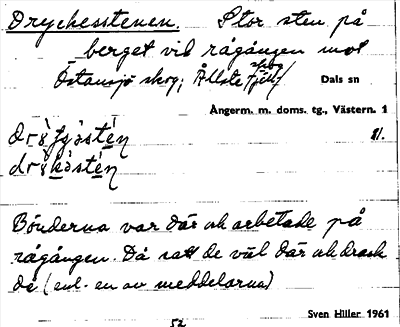 Dryckesstenen. Stor sten på
berget vid rågången mot
Östansjö skog; Ållsta
skog
Dals sn
Ångerm. m. doms. tg., Västern. 1
11.
Bönderna var där och arbetade på
rågången. Då satt de väl där och drack
då (enl. en av meddelarna)
52
Sven Hiller 1961